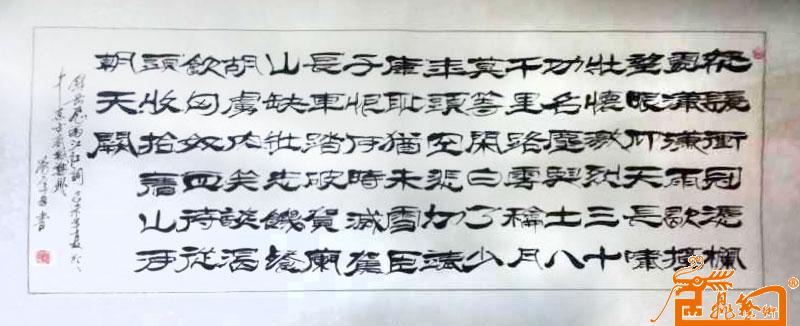 怒髮衝冠憑欄
處瀟瀟雨歇抬
望眼仰天長嘯
壯懷激烈三十
功名塵與土八
千里路雲和月
莫等閑白了少
年頭空悲切靖
康恥猶未雪臣
子恨何時滅駕
長車踏破賀蘭
山缺壯志飢餐
胡虜肉笑談渴
飲匈奴血待從
頭收拾舊山河
朝天闕
錄岳飛滿江紅詞
書